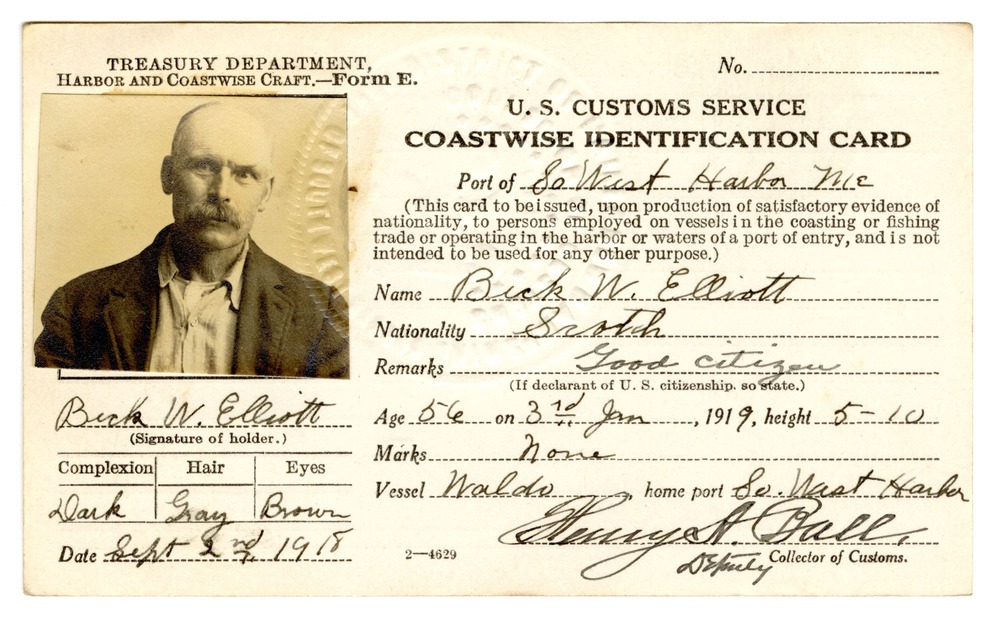 TREASURY DEPARTMENT,
HARBOR AND COASTWISE CRAFT.—Form E.
No.
U. S. CUSTOMS SERVICE
COASTWISE IDENTIFICATION CARD
Port of So West Harbor Me
(This card to be issued, upon production of satisfactory evidence of
nationality, to persons employed on vessels in the coasting or fishing
trade or operating in the harbor or waters of a port of entry, and is not
intended to be used for any other purpose.)
Name Beck W. Elliott
Nationality Scotch
Remarks Good citizen
(If declarant of U. S. citizenship, so state.)
Age 56 on 3rd Jan, 1919, height 5-10
Marks None
Vessel Waldo, home port So. West Harbor
Henry A. Ball,
Deputy Collector of Customs.
Beck W. Elliott
(Signature of holder.)
Complexion Hair Eyes
Dark Gray Brown
Date Sept 2nd, 1918
2—4629